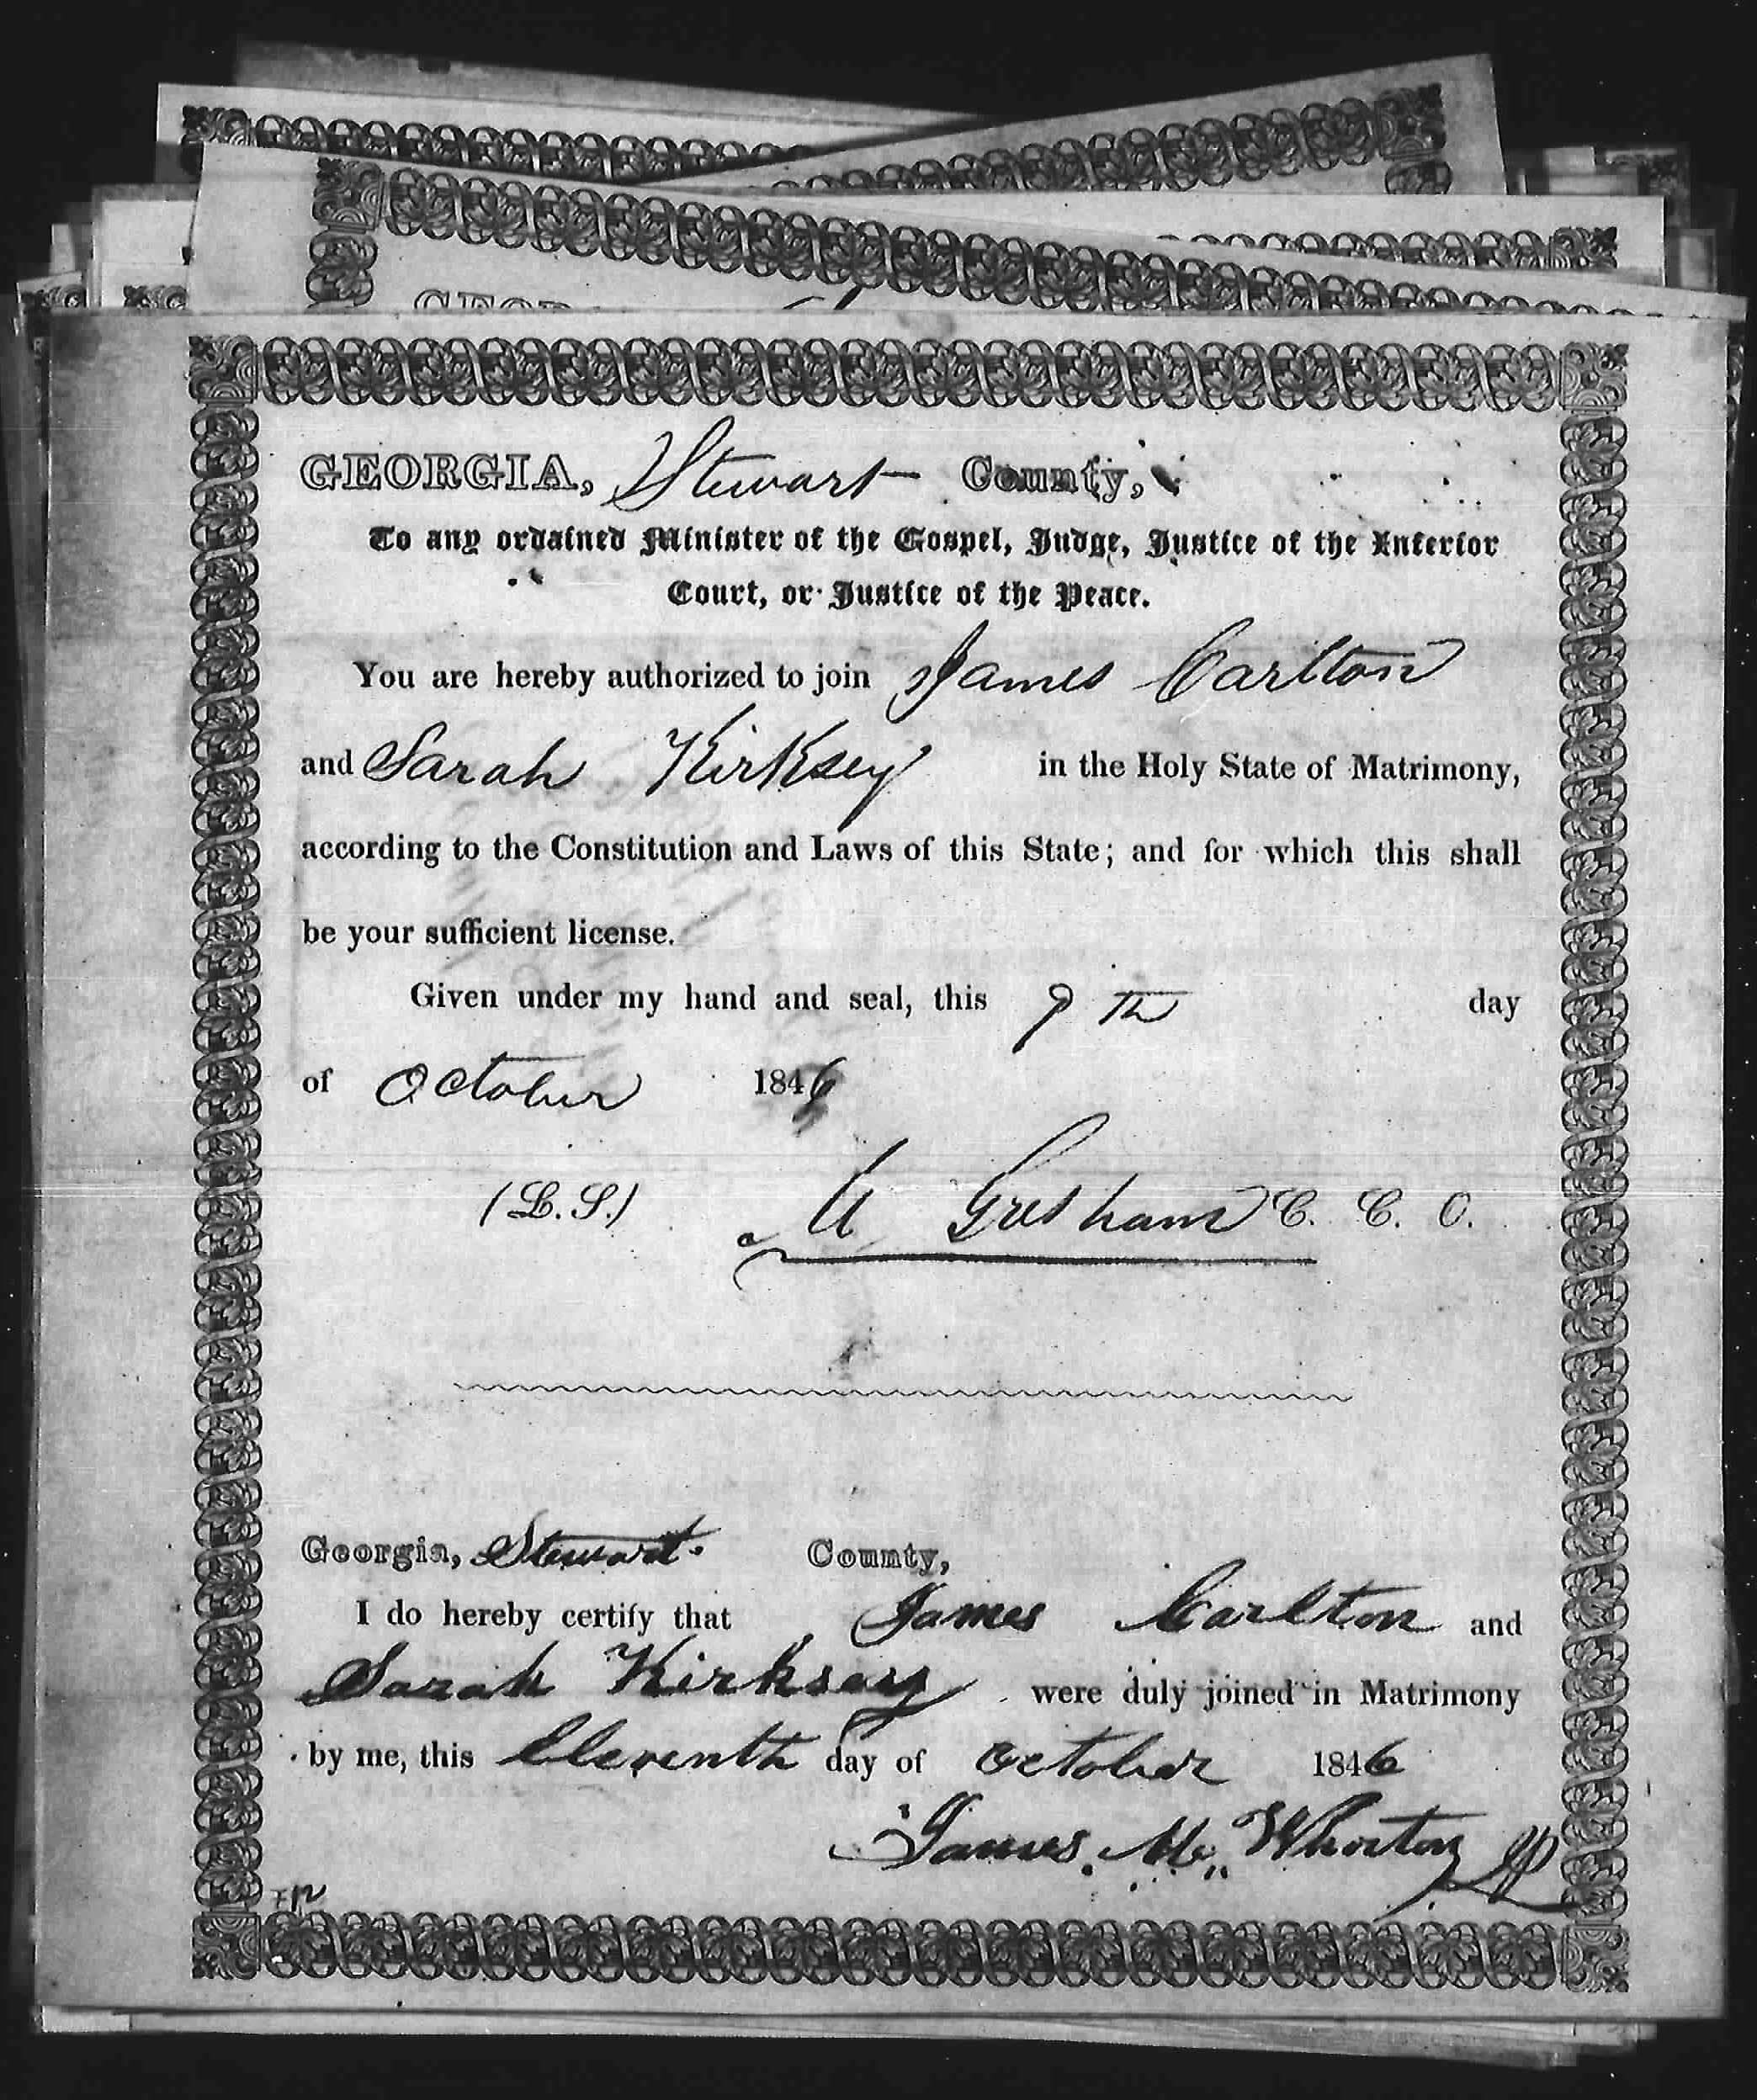 GEORGIA, Stewart County,
To any ordained Minister of the Gospel, Judge, Justice of the Inferior
Court, or Justice of the Peace.
You are hereby authorized to join James Carlton
and Sarah Kirksey in the Holy State of Matrimony,
according to the Constitution and Laws of this State; and for which this shall
be your sufficient license.
Given under my hand and seal, this 9th day
of October 1846
(L.S.) A Gresham C. C. O.
Georgia, Stewart County,
I do hereby certify that James Carlton and
Sarah Kirksey were duly joined in Matrimony
by me, this Eleventh day of October 1846
James McWhorter JP